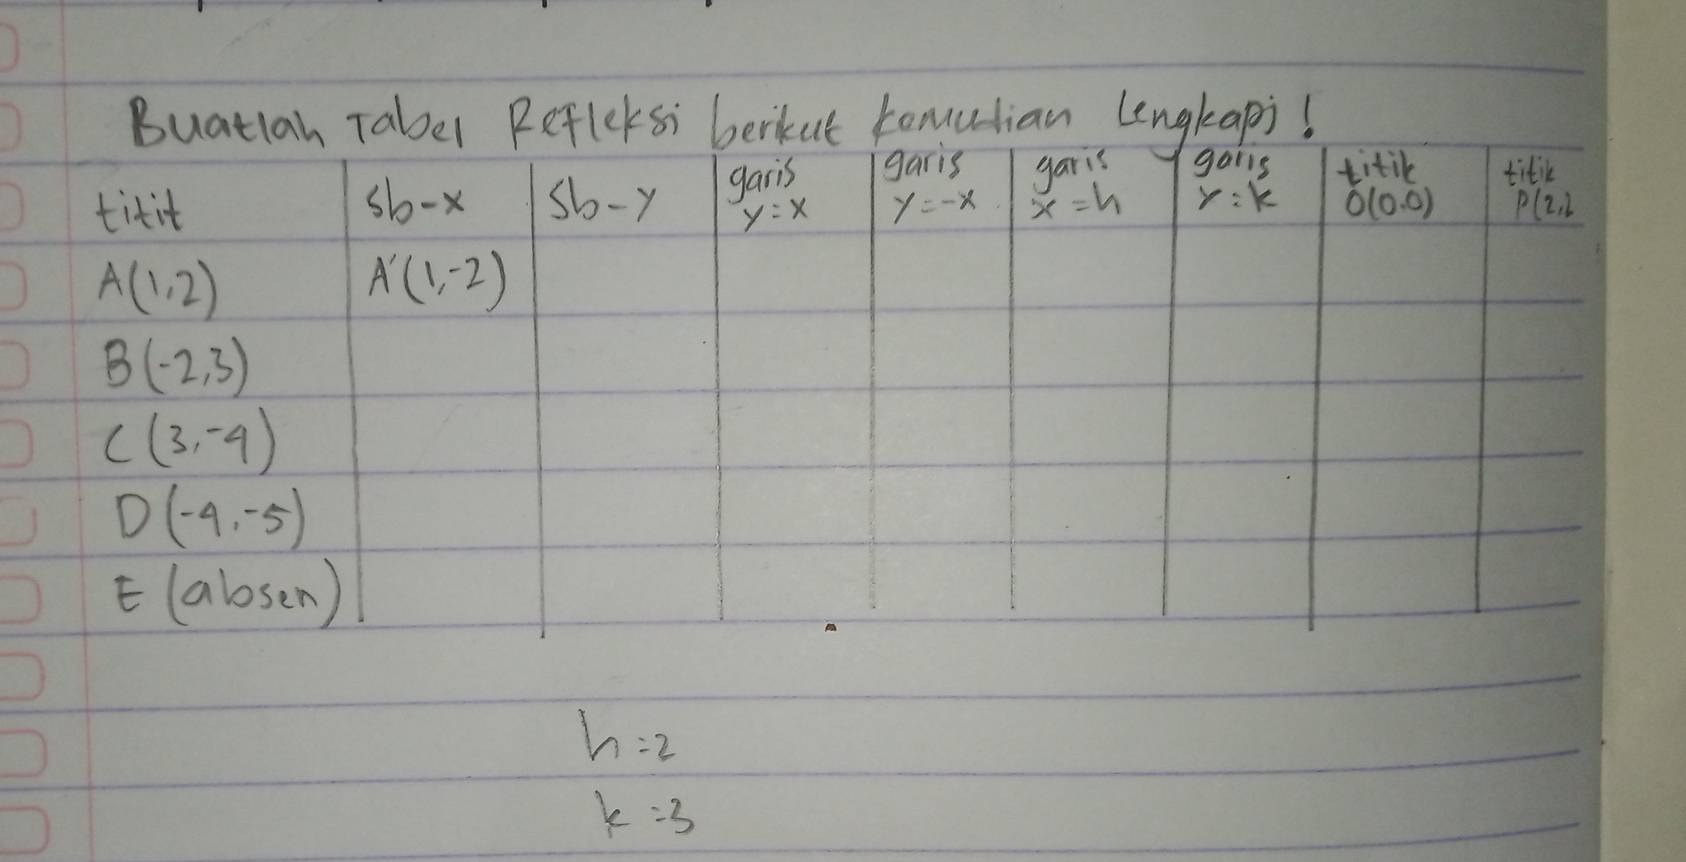 Buatlah Tabel Refleksi berikut kemudian lengkapi !
titit sb-x sb-y garis y=x garis y=-x garis x=h garis y=k titik O(0.0) titik P(2,2
A(1,2) A'(1,-2)
B(-2,3)
C(3,-4)
D(-4,-5)
E (absen)
h=2
k=3